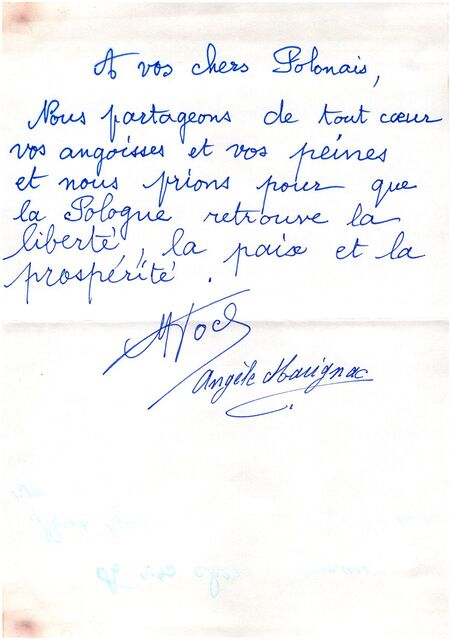 A vos chers Polonais,
Nous partageons de tout cœur
vos angoisses et vos peines
et nous prions pour que
la Pologne retrouve la
liberté, la paix et la
prospérité.
Angèle Marignac